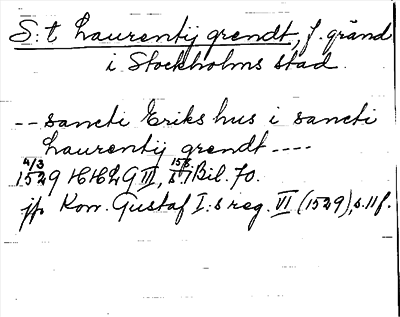 S:t Laurentij grendt, f. gränd
i Stockholms stad.
-- sancti Eriks hus i sancti
Laurentij grendt ----
4/3 1529 HHLG III, Bil. 70.
jfr Kon. Gustaf I:s reg. VI (1529), s. 11 f.